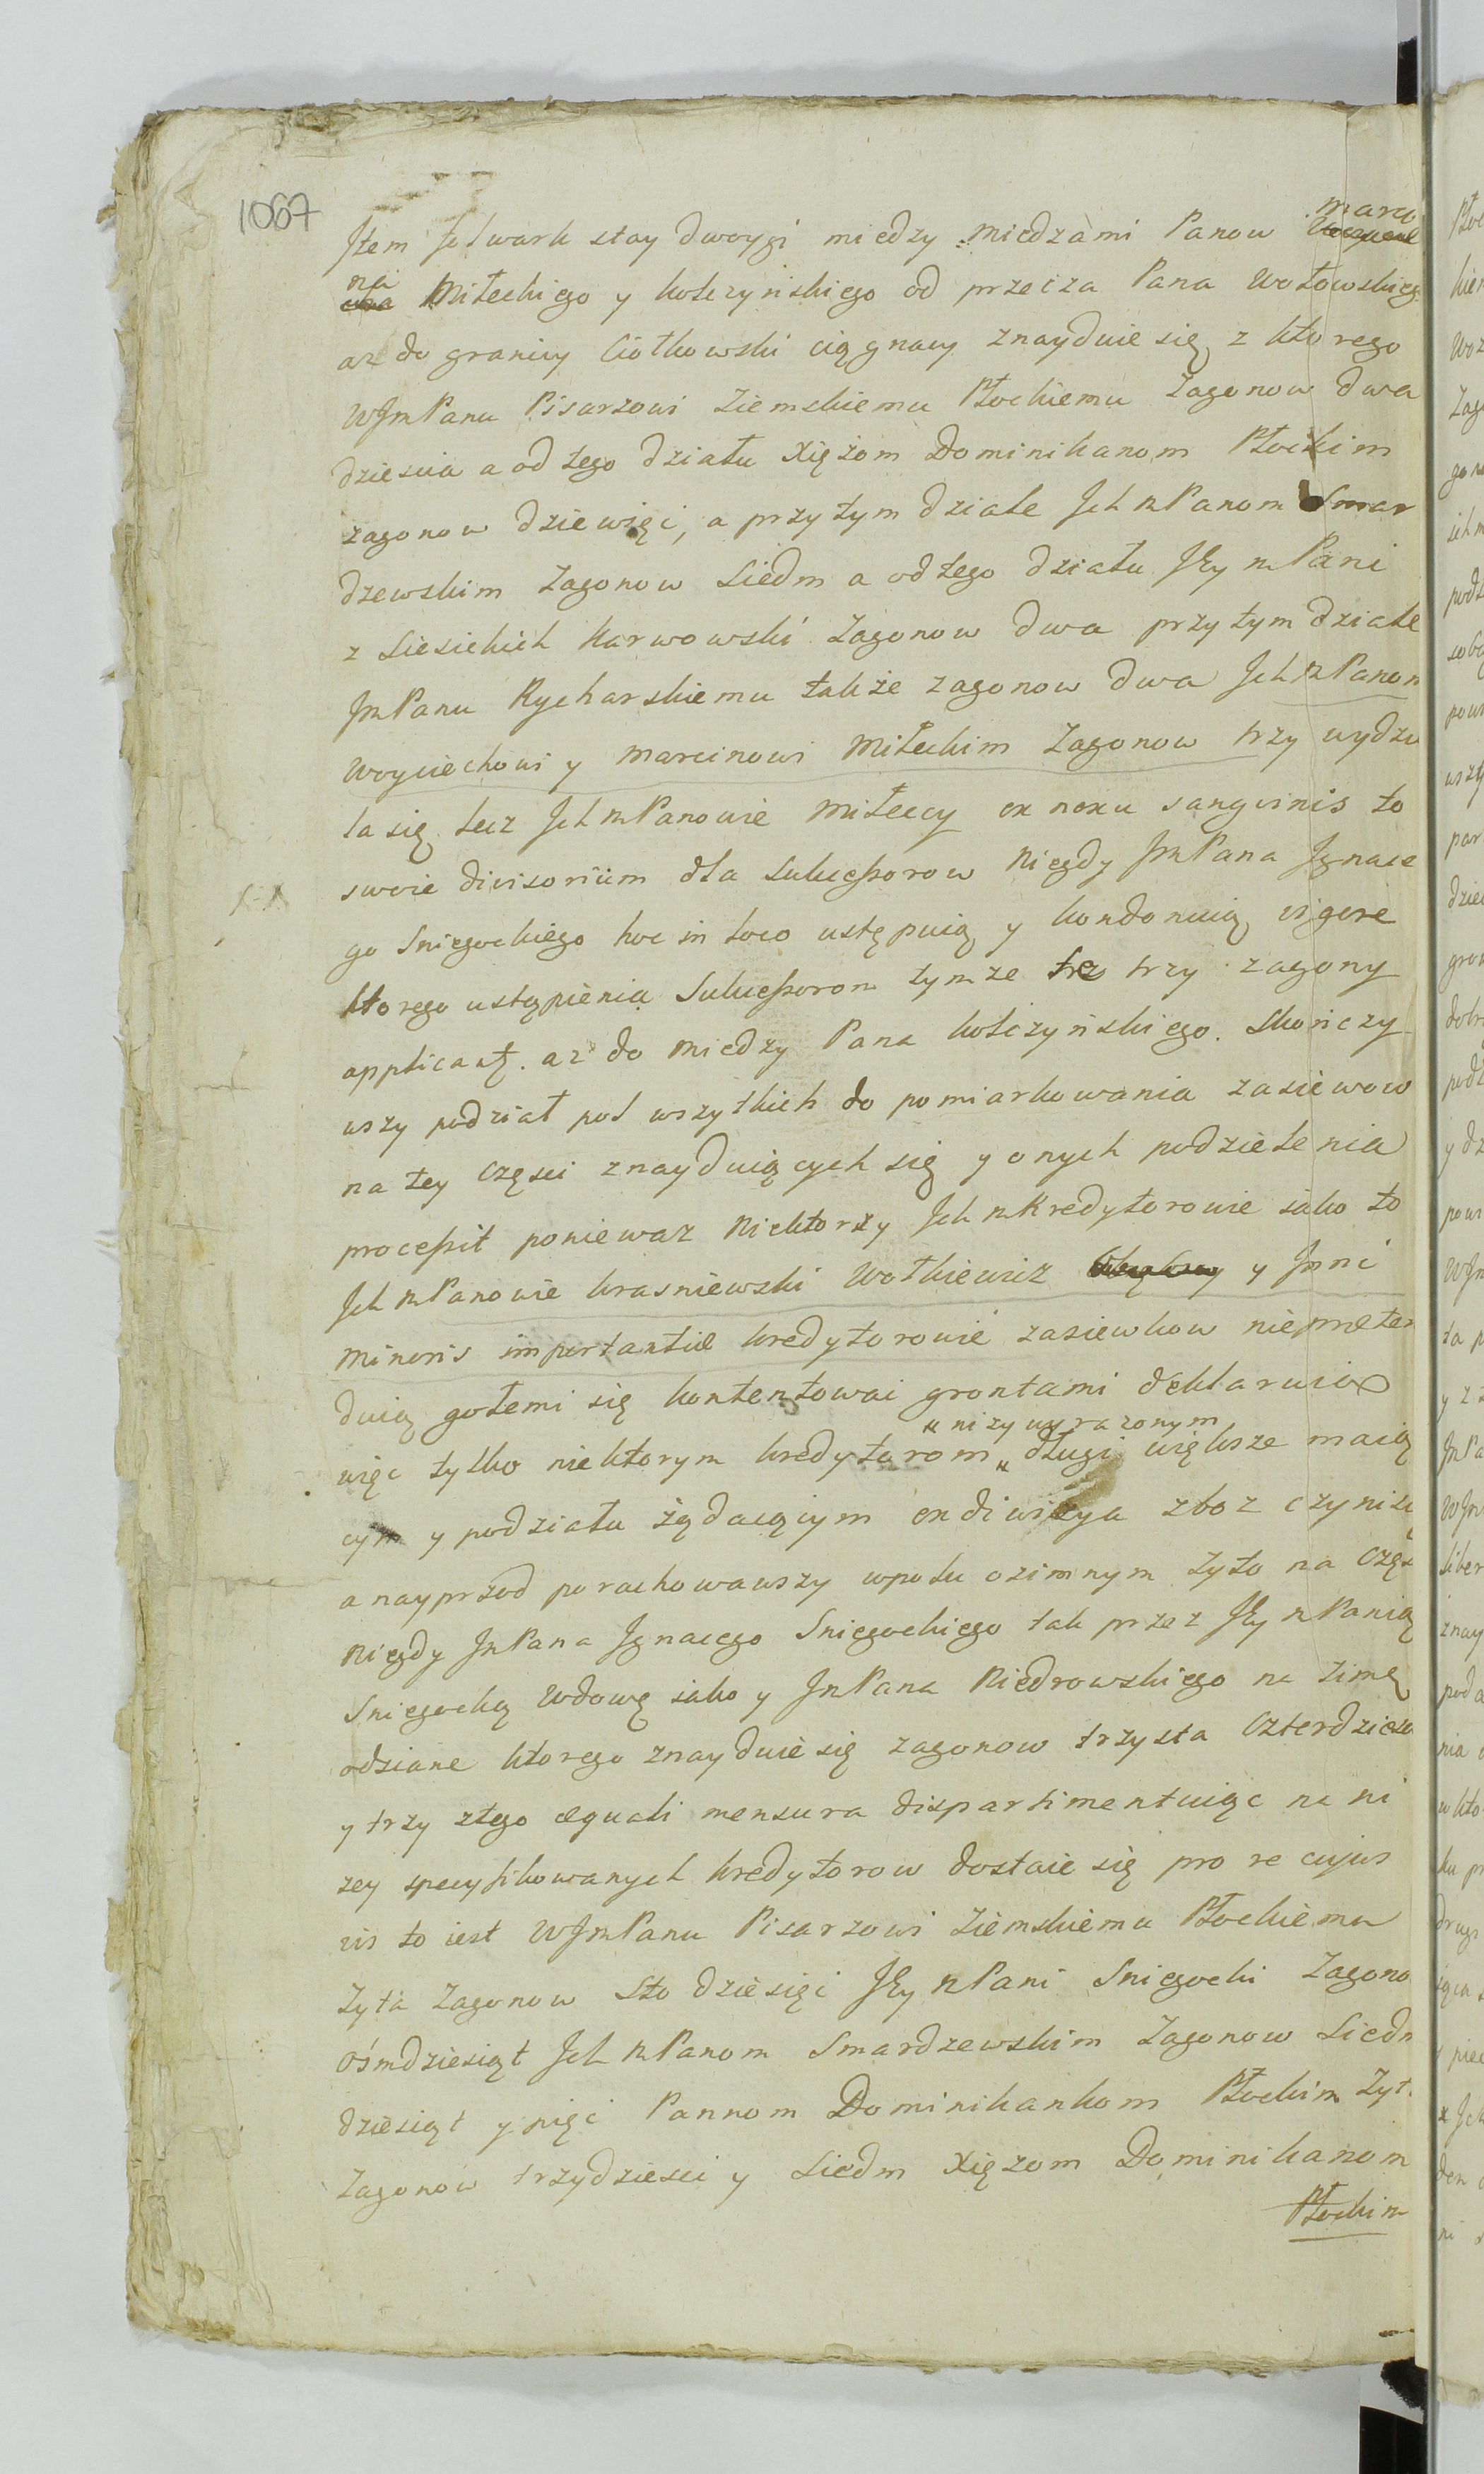 1067
Item folwark stay dwoygi miedzy miedzami Panow marci
na Miłeckiego y Kolczyńskiego od przecza Pana Wołowskieg
az do granicy Ciołkowski ciągnący znayduie się z ktorego
WJmPanu Pisarzowi Ziemskiemu Płockiemu Zagonow dwa
dziescia a od tego działu Xiężom Dominikanom Płockim
zagonow dziewięć, a przy tym dziale JchmPanom Smar
dzewskim Zagonow Siedm a od tego działu JEymPani
z Siesickich Karwowski Zagonow dwa przy tym dziale
JmPanu Rycharskiemu także zagonow dwa JchmPanom
Woyciechowi y Marcinowi Miłeckim Zagonow trzy wydzie
la się lecz JchmPanowie Miłeccy ex nexu sangvinis to
swoie divisorium dla Sukcessorow Niegdy JmPana Ignace
go Sniegockiego hoc in loco ustępuią y kondonuią vigore
ktorego ustąpienia Sukcessorom tymze trzy zagony
applicant. az do miedzy Pana Kolczyńskiego. Skończy
wszy podział pol wszytkich do pomiarkowania zasiewow
na tey Części znayduiących się y onych podzielenia
processit poniewaz Niektorzy JchmKredytorowie iako to
JchmPanowie Krasniewski Wołkiewicz y Jnni
minoris importantiæ kredytorowie zasiewkow niepræten
duią gołemi się kontentowai grontami deklaruią
więc tylko niektorym kredytorom " nizy wyrazonym " długi większe maią
cym y podziału żądaiącym exdiwizya zboz czyni się
a nayprzod porachowawszy wpolu ozimnym żyto na Częs
Niegdy JmPana Ignacego Sniegockiego tak przez JEymPanią
Sniegocką Wdowę iako y JmPana Niedrowskiego na zimę
odsiane ktorego znayduie się zagonow trzysta Czterdziesci
y trzy ztego æquali mensura dispartimentuiąc na ni
zey specyfikowanych kredytorow dostaie się pro re cujus
vis to iest WJmPanu Pisarzowi Ziemskiemu Płockiemu
Zyta Zagonow Sto dziesięć JEymPani Sniegocki Zagono
ośmdziesiąt JchmPanom Smardzewskim Zagonow Siedm
dziesiąt y pięć Pannom Dominikankom Płockim Zyt
Zagonow trzydziesci y Siedm Xięzom Dominikanom
Płockim